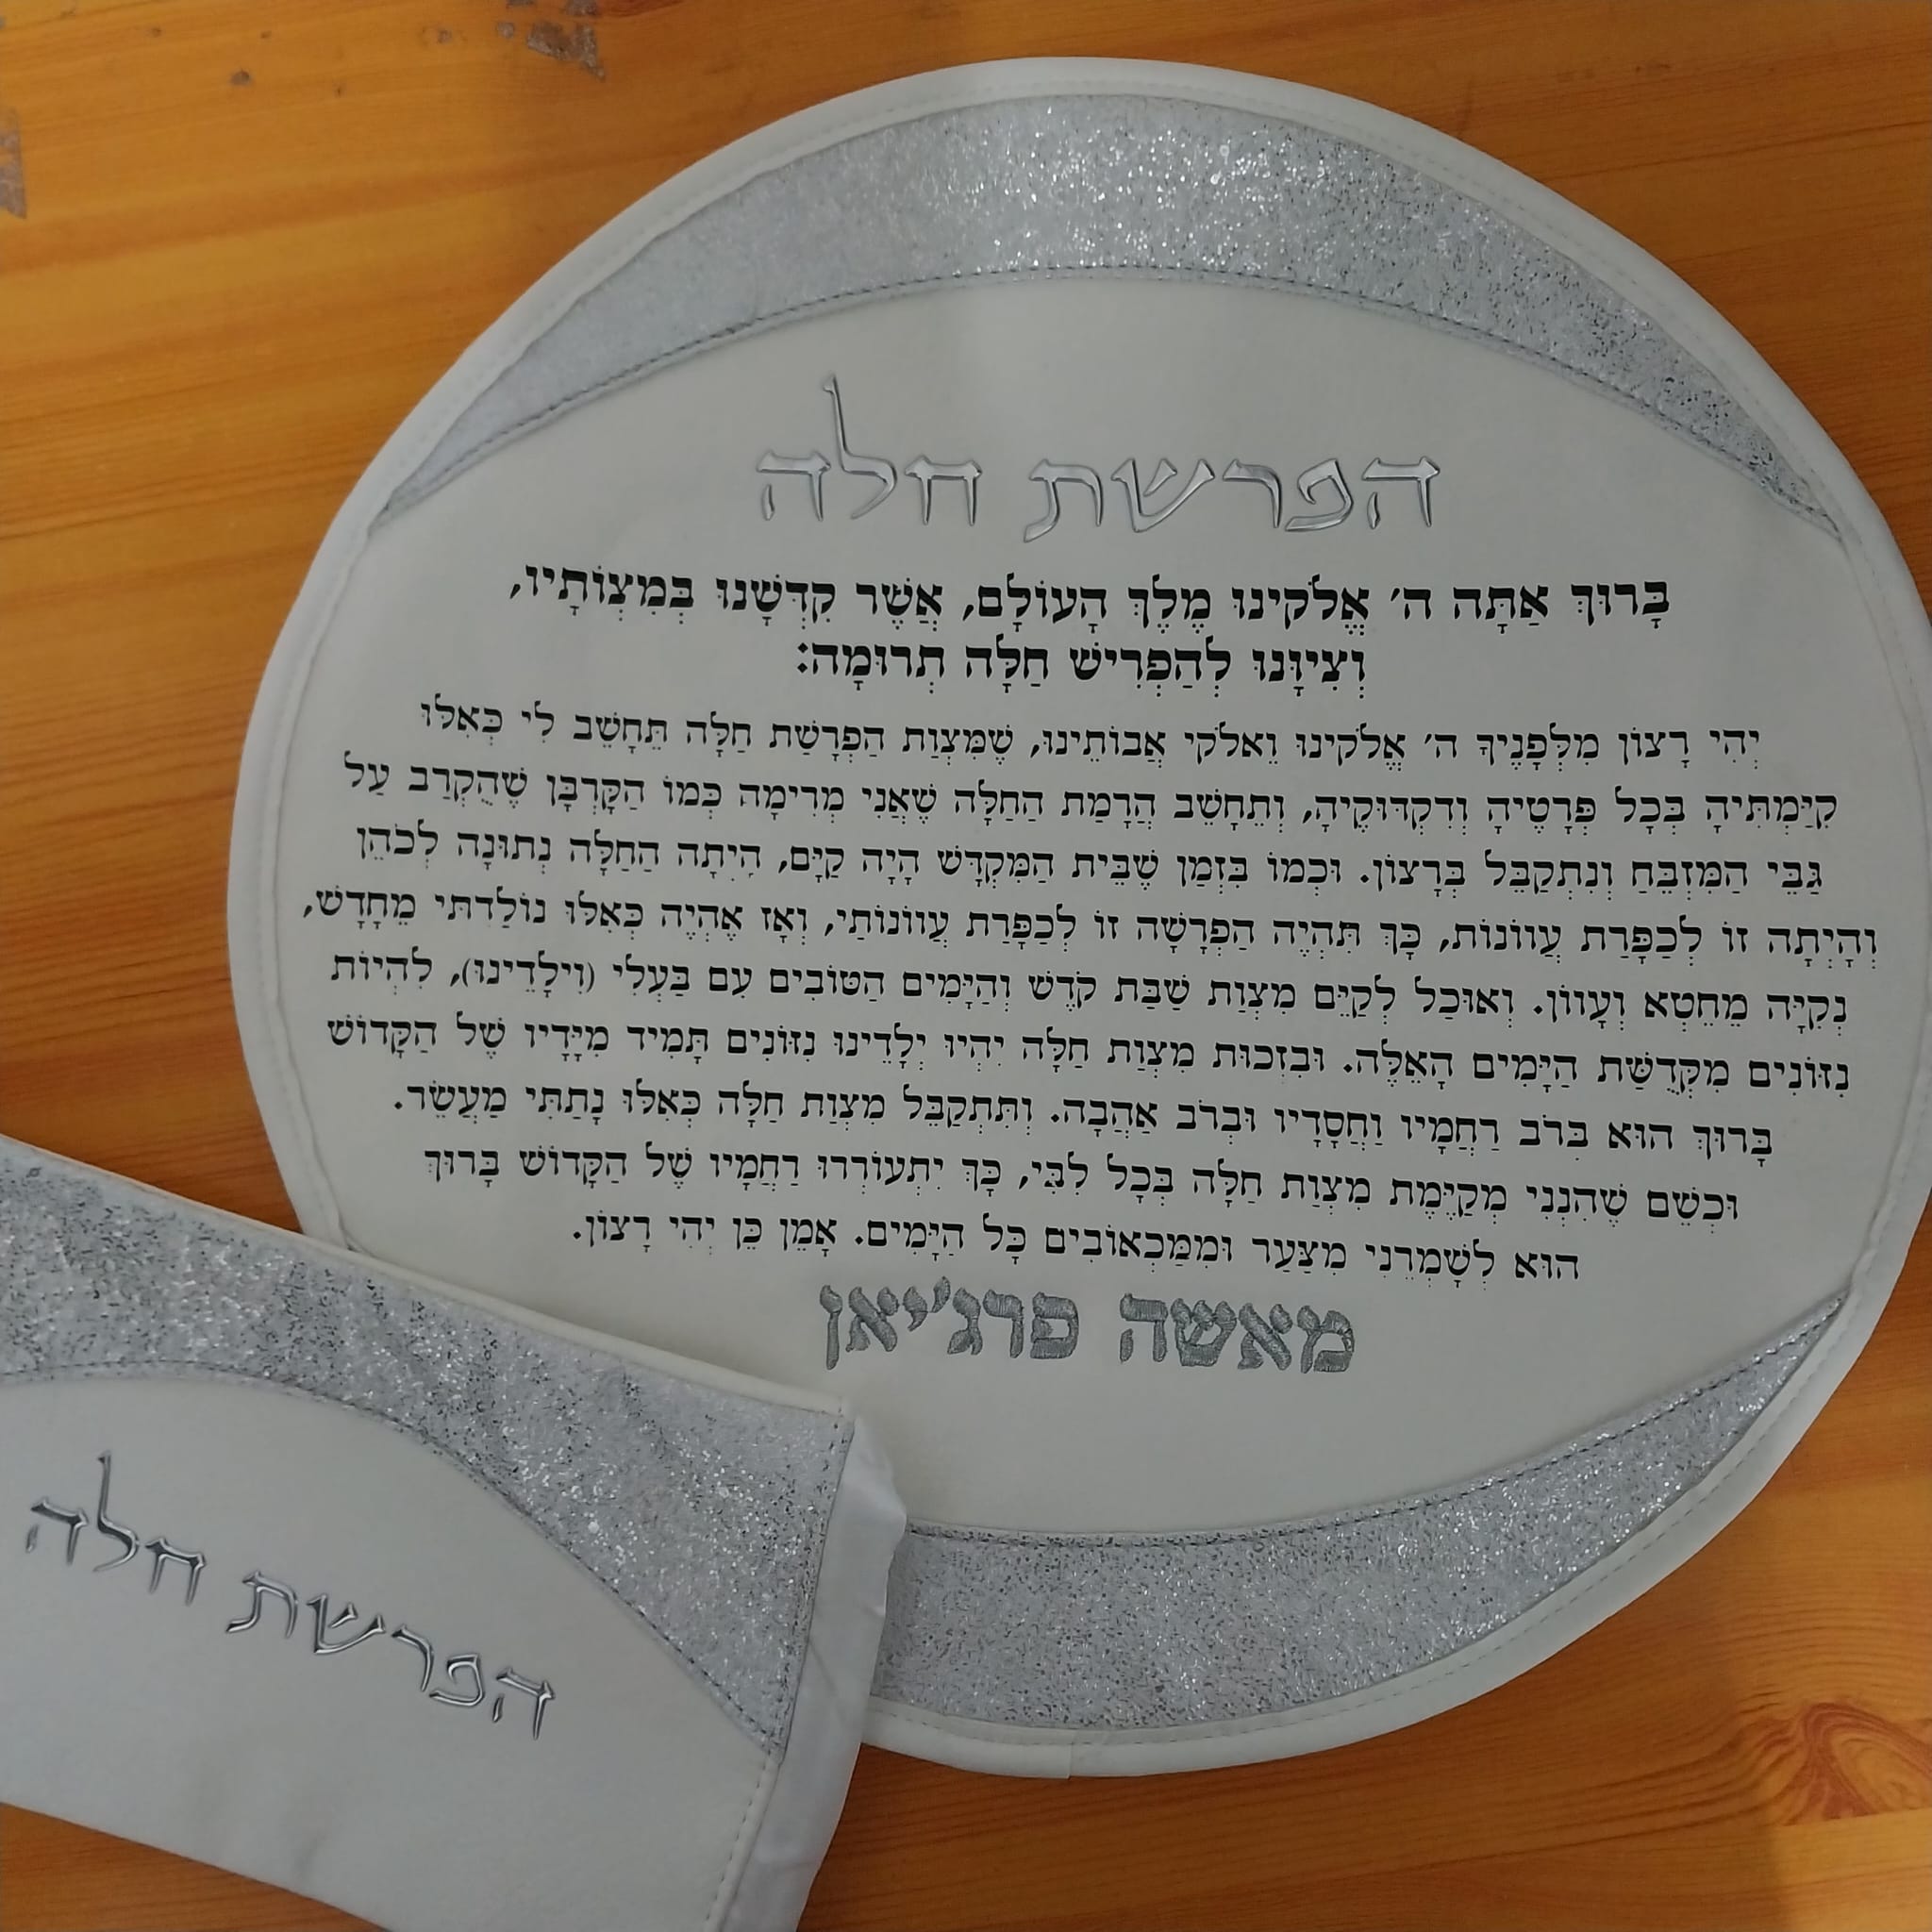 הפרשת חלה
בָּרוּךְ אַתָּה ה׳ אֱלֹקֵינוּ מֶלֶךְ הָעוֹלָם, אֲשֶׁר קִדְּשָׁנוּ בְּמִצְוֹתָיו,
וְצִיוָּנוּ לְהַפְרִישׁ חַלָּה תְּרוּמָה:
יְהִי רָצוֹן מִלְּפָנֶיךָ ה׳ אֱלֹקֵינוּ וֵאלֹקֵי אֲבוֹתֵינוּ, שֶׁמִּצְוַת הַפְרָשַׁת חַלָּה תֵּחָשֵׁב לִי כְּאִלּוּ
קִיַּמְתִּיהָ בְּכָל פְּרָטֶיהָ וְדִקְדּוּקֶיהָ, וְתֵחָשֵׁב הֲרָמַת הַחַלָּה שֶׁאֲנִי מְרִימָה כְּמוֹ הַקָּרְבָּן שֶׁהֻקְרַב עַל
גַּבֵּי הַמִּזְבֵּחַ וְנִתְקַבֵּל בְּרָצוֹן. וּכְמוֹ בִּזְמַן שֶׁבֵּית הַמִּקְדָּשׁ הָיָה קַיָּם, הָיְתָה הַחַלָּה נְתוּנָה לְכֹהֵן
וְהָיְתָה זוֹ לְכַפָּרַת עֲווֹנוֹת, כָּךְ תִּהְיֶה הַפְרָשָׁה זוֹ לְכַפָּרַת עֲווֹנוֹתַי, וְאָז אֶהְיֶה כְּאִלּוּ נוֹלַדתּי מֵחָדָשׁ,
נְקִיָּה מֵחֵטְא וְעָווֹן. וְאוּכַל לְקַיֵּם מִצְוַת שַׁבַּת קֹדֶשׁ וְהַיָּמִים הַטּוֹבִים עִם בַּעְלִי (וִילָדֵינוּ), לִהְיוֹת
נִזּוֹנִים מִקְּדֻשַּׁת הַיָּמִים הָאֵלֶּה. וּבִזְכוּת מִצְוַת חַלָּה יִהְיוּ יְלָדֵינוּ נִזּוֹנִים תָּמִיד מִיָּדָיו שֶׁל הַקָּדוֹשׁ
בָּרוּךְ הוּא בְּרֹב רַחֲמָיו וַחֲסָדָיו וּבְרֹב אַהֲבָה. וְתִתְקַבֵּל מִצְוַת חַלָּה כְּאִלּוּ נָתַתִּי מַעֲשֵׂר.
וּכְשֵׁם שֶׁהִנְנִי מְקַיֶּמֶת מִצְוַת חַלָּה בְּכָל לִבִּי, כָּךְ יִתְעוֹרְרוּ רַחֲמָיו שֶׁל הַקָּדוֹשׁ בָּרוּךְ
הוּא לְשָׁמְרֵנִי מִצַּעַר וּמִמַּכְאוֹבִים כָּל הַיָּמִים. אָמֵן כֵּן יְהִי רָצוֹן.
מאשה פרג׳יאן
הפרשת חלה